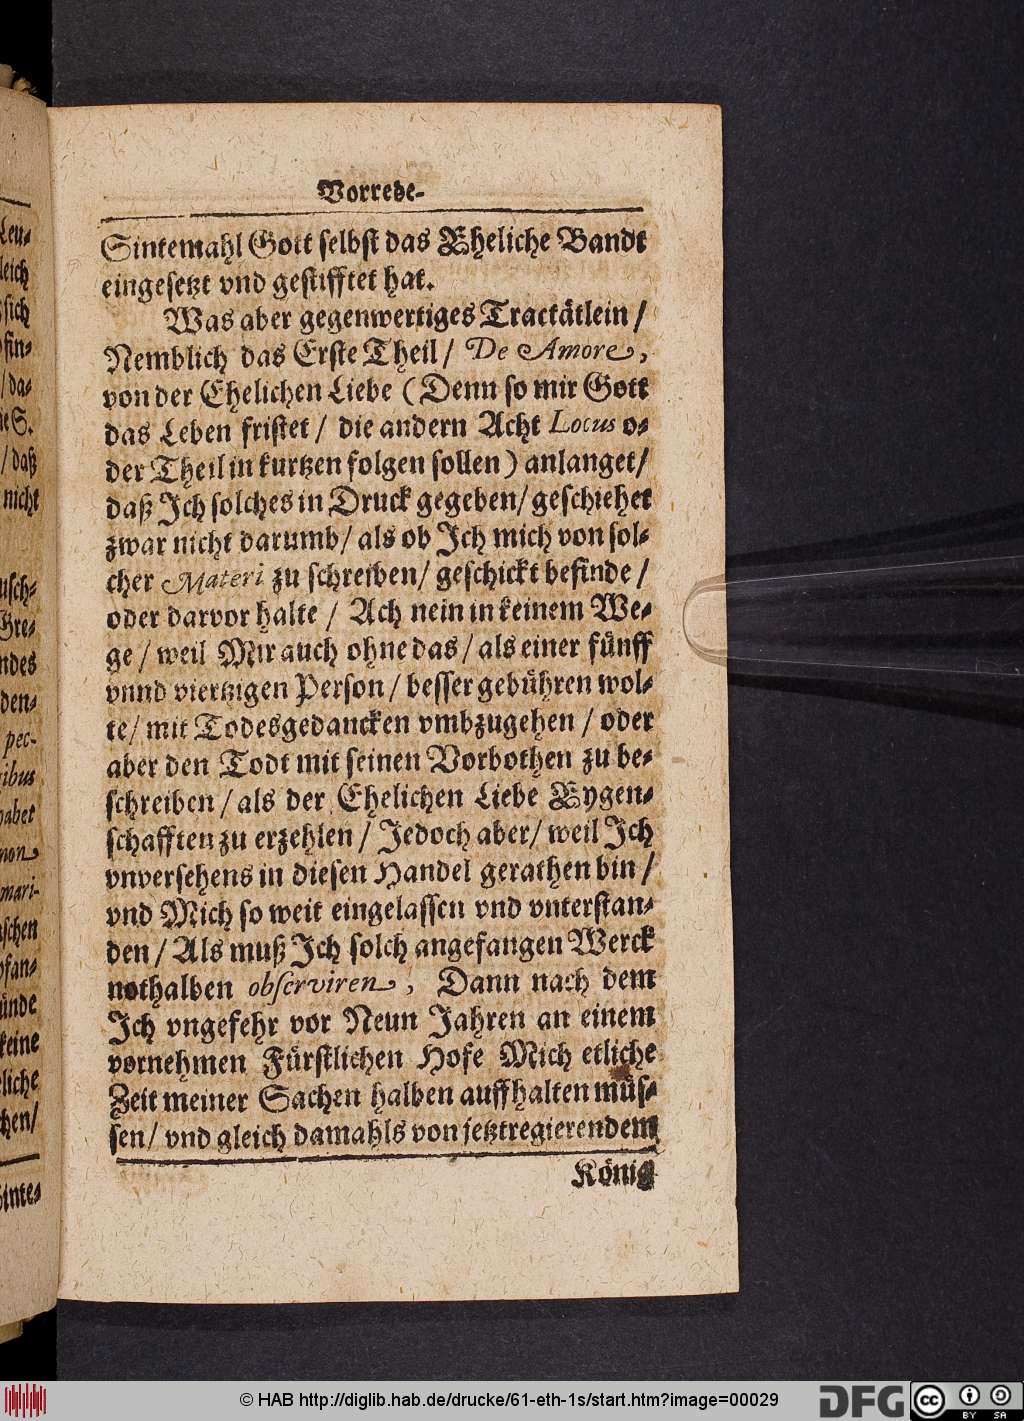 Vorrede-
Sintemahl Gott selbst das Eheliche Bandt
eingesetzt vnd gestifftet hat.
Was aber gegenwertiges Tractätlein /
Nemblich das Erste Theil / De Amore,
von der Ehelichen Liebe (Denn so mir Gott
das Leben fristet / die andern Acht Locus o-
der Theil in kurtzen folgen sollen) anlanget /
daß Ich solches in Druck gegeben / geschiehet
zwar nicht darumb / als ob Ich mich von sol-
cher Materi zu schreiben / geschickt befinde /
oder darvor halte / Ach nein in keinem We-
ge / weil Mir auch ohne das / als einer fünff
vnnd viertzigen Person / besser gebühren wol-
te / mit Todesgedancken vmbzugehen / oder
aber den Todt mit seinen Vorbothen zu be-
schreiben / als der Ehelichen Liebe Eygen-
schafften zu erzehlen / Jedoch aber / weil Ich
vnversehens in diesen Handel gerathen bin /
vnd Mich so weit eingelassen vnd vnterstan-
den / Als muß Ich solch angefangen Werck
nothalben observiren, Dann nach dem
Ich vngefehr vor Neun Jahren an einem
vornehmen Fürstlichen Hofe Mich etliche
Zeit meiner Sachen halben auffhalten müs-
sen / vnd gleich damahls von jetztregierendem
König
Leu-
leich
sich
fin-
/ da-
ne S.
/ daß
nicht
usch-
Gre-
ndes
den-
pec-
ribus
habet
non
mari-
schen
pfan-
ünde
keine
liche
chen /
Sinte-
© HAB http://diglib.hab.de/drucke/61-eth-1s/start.htm?image=00029
DFG
cc BY SA